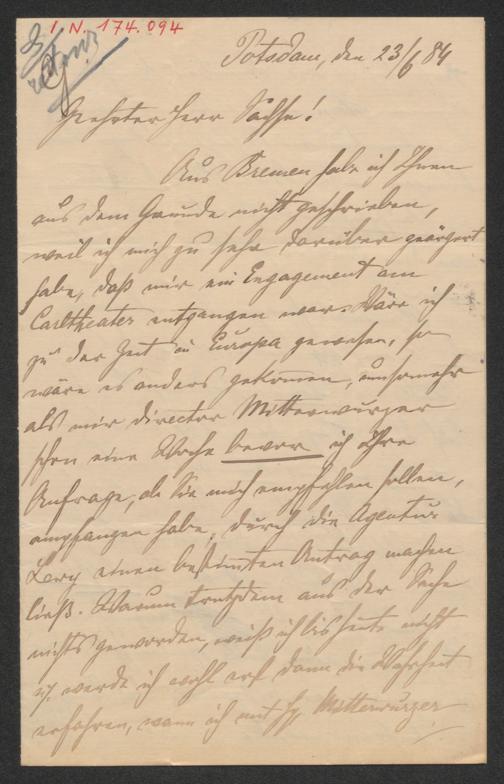 I. N. 174.094
Potsdam, den 23/6 84
Geehrter Herr Sachse!
Aus Bremen habe ich Ihnen
aus dem Grunde nicht geschrieben,
weil ich mich zu sehr darüber geärgert
habe, daß mir ein Engagement am
Carltheater entgangen war. Wäre ich
zu der Zeit in Europa gewesen, so
wäre es anders gekommen, umsomehr
als mir Director Mitterwurzer
schon eine Woche bevor ich Ihre
Anfrage, ob Sie mich empfehlen sollen,
empfangen habe, durch die Agentur
Lewy einen bestimmten Antrag machen
ließ. Warum trotzdem aus der Sache
nichts geworden, weiß ich bis heute nicht
u. werde ich wohl erst dann die Wahrheit
erfahren, wenn ich mit H. Mitterwurzer